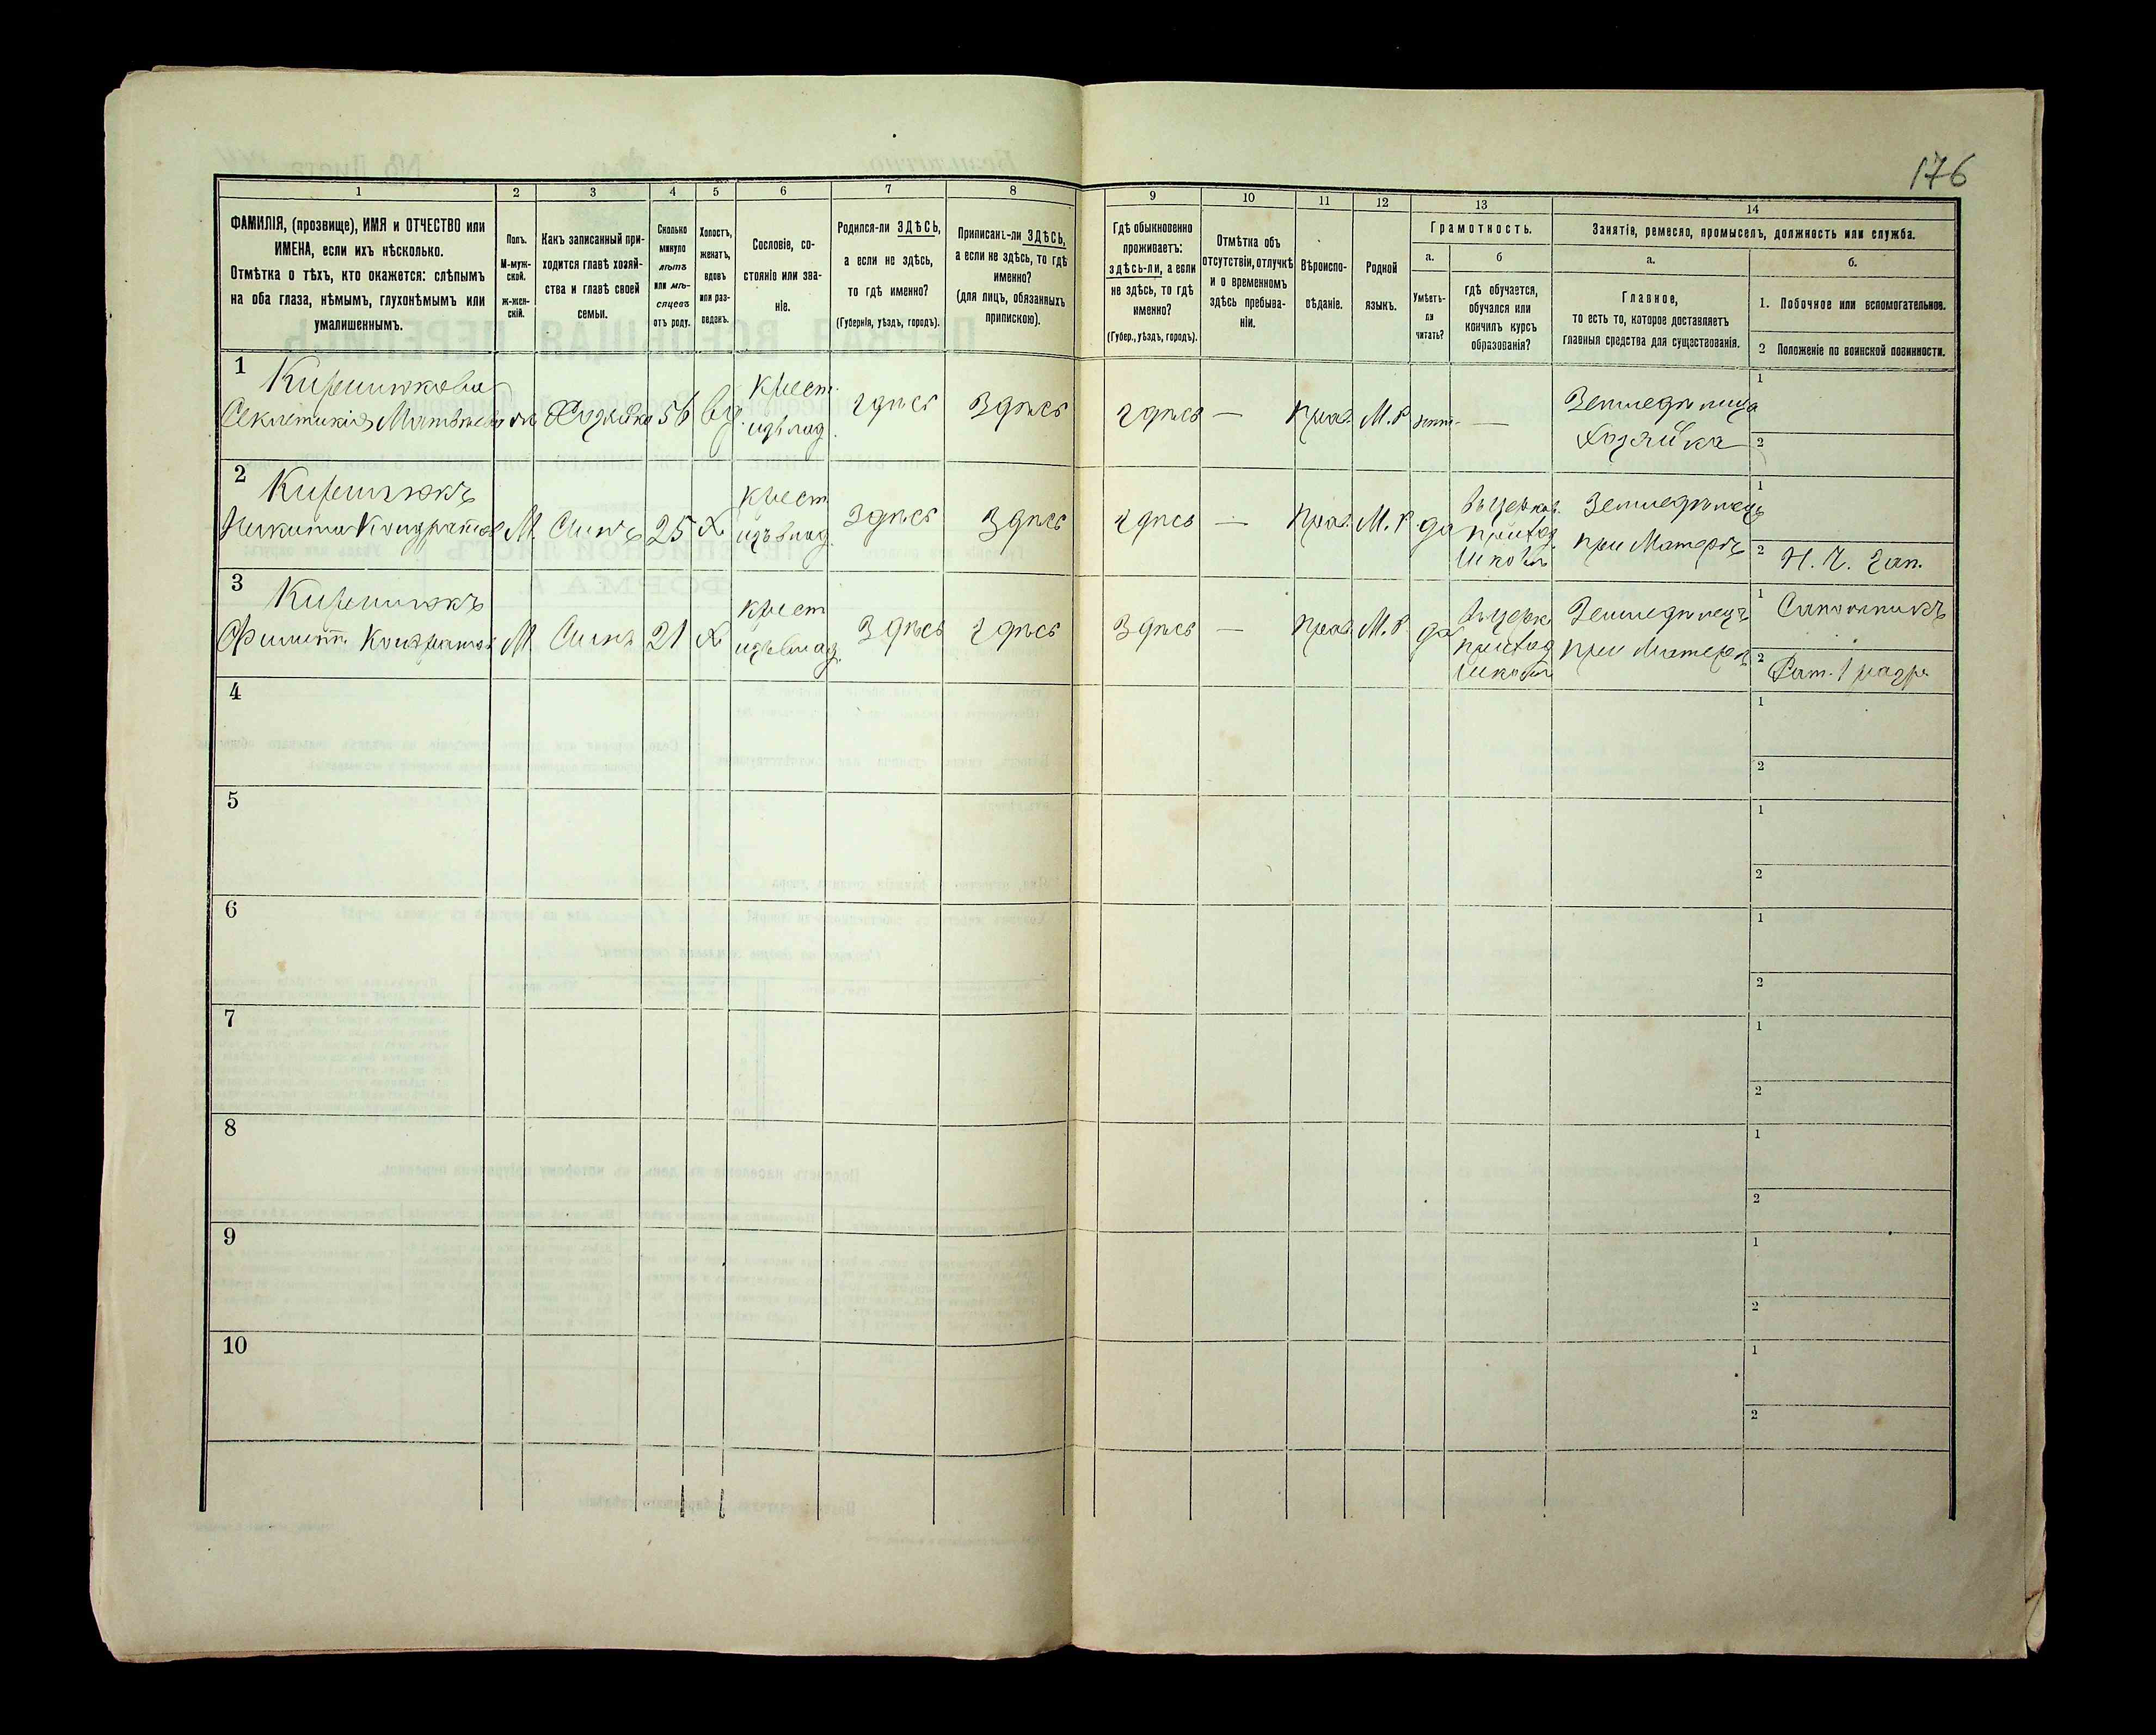 176
1 2 3 4 5 6 7 8 9 10 11 12 13 14
ФАМИЛІЯ, (прозвище), ИМЯ и ОТЧЕСТВО или
ИМЕНА, если ихъ нѣсколько.
Отмѣтка о тѣхъ, кто окажется: слѣпымъ
на оба глаза, нѣмымъ, глухонѣмымъ или
умалишеннымъ.
Полъ.
М-муж-
ской.
ж-жен-
скій.
Какъ записанный при-
ходится главѣ хозяй-
ства и главѣ своей
семьи.
Сколько
минуло
лѣтъ
или мѣ-
сяцевъ
отъ роду.
Холостъ,
женатъ,
вдовъ
или раз-
веденъ.
Сословіе, со-
стояніе или зва-
ніе.
Родился-ли ЗДѢСЬ,
а если не здѣсь,
то гдѣ именно?
(Губернія, уѣздъ, городъ).
Приписанъ-ли ЗДѢСЬ,
а если не здѣсь, то гдѣ
именно?
(для лицъ, обязанныхъ
припискою).
Гдѣ обыкновенно
проживаетъ:
здѣсь-ли, а если
не здѣсь, то гдѣ
именно?
(Губер., уѣздъ, городъ).
Отмѣтка объ
отсутствіи, отлучкѣ
и о временномъ
здѣсь пребыва-
ніи.
Вѣроиспо-
вѣданіе.
Родной
языкъ.
Грамотность.
а.
Умѣетъ-
ли
читать?
б
гдѣ обучается,
обучался или
кончилъ курсъ
образованія?
Занятія, ремесло, промыселъ, должность или служба.
а.
Главное,
то есть то, которое доставляетъ
главныя средства для существованія.
б.
1. Побочное или вспомогательное.
2 Положеніе по воинской повинности.
1
Матвѣева
Хозяйка 56 вд.
крест.
изъ влад.
здѣсь здѣсь здѣсь — Прав. М.Р. нѣт. —
Земледѣлица
Хозяйка
1
2
2
Никита Кондратов М. Сынъ 25 Х
крест
изъ влад.
Здѣсь Здѣсь здѣсь — Прав. М.Р. да
Въ церков.
приход
школѣ
Земледѣлецъ
при Матерѣ
1
2 Н. Ч. Зап.
3
Филипп Кондратов М. Сынъ 21 Х
крест
изъ влад.
Здѣсь здѣсь Здѣсь — Прав. М.Р. да
Въ церк.
приход
школѣ
Земледѣлецъ
при Матерѣ
1 Сапожникъ
2 Рат. 1 разр.
4
1
2
5
1
2
6
1
2
7
1
2
8
1
2
9
1
2
10
1
2